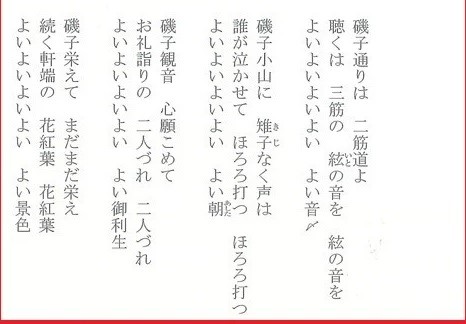 磯子通りは　二筋道よ
聴くは　三筋の　絃の音を　絃の音を
よいよいよいよい　よい音〆
磯子小山に　雉子なく声は
誰が泣かせて　ほろろ打つ　ほろろ打つ
よいよいよいよい　よい朝
磯子観音　心願こめて
お礼詣りの　二人づれ　二人づれ
よいよいよいよい　よい御利生
磯子栄えて　まだまだ栄え
続く軒端の　花紅葉　花紅葉
よいよいよいよい　よい景色